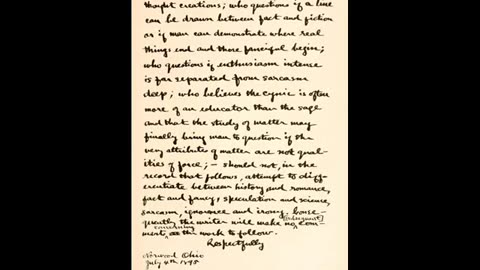 thought creations; who questions if a line
can be drawn between fact and fiction
or if man can demonstrate where real
things end and those fanciful begin;
who questions if enthusiasm intense
is far separated from sarcasm
deep; who believes the cynic is often
more of an educator than the sage
and that the study of matter may
finally bring man to question if the
very attributes of matter are not qual-
ities of force; — should not, in the
record that follows, attempt to diff-
erentiate between history and romance,
fact and fancy, speculation and science,
sarcasm, ignorance and irony. Conse-
quently the writer will make no (subsequent) com-
ments, concerning the work to follow.
Respectfully
Norwood Ohio
July 4th, 1895